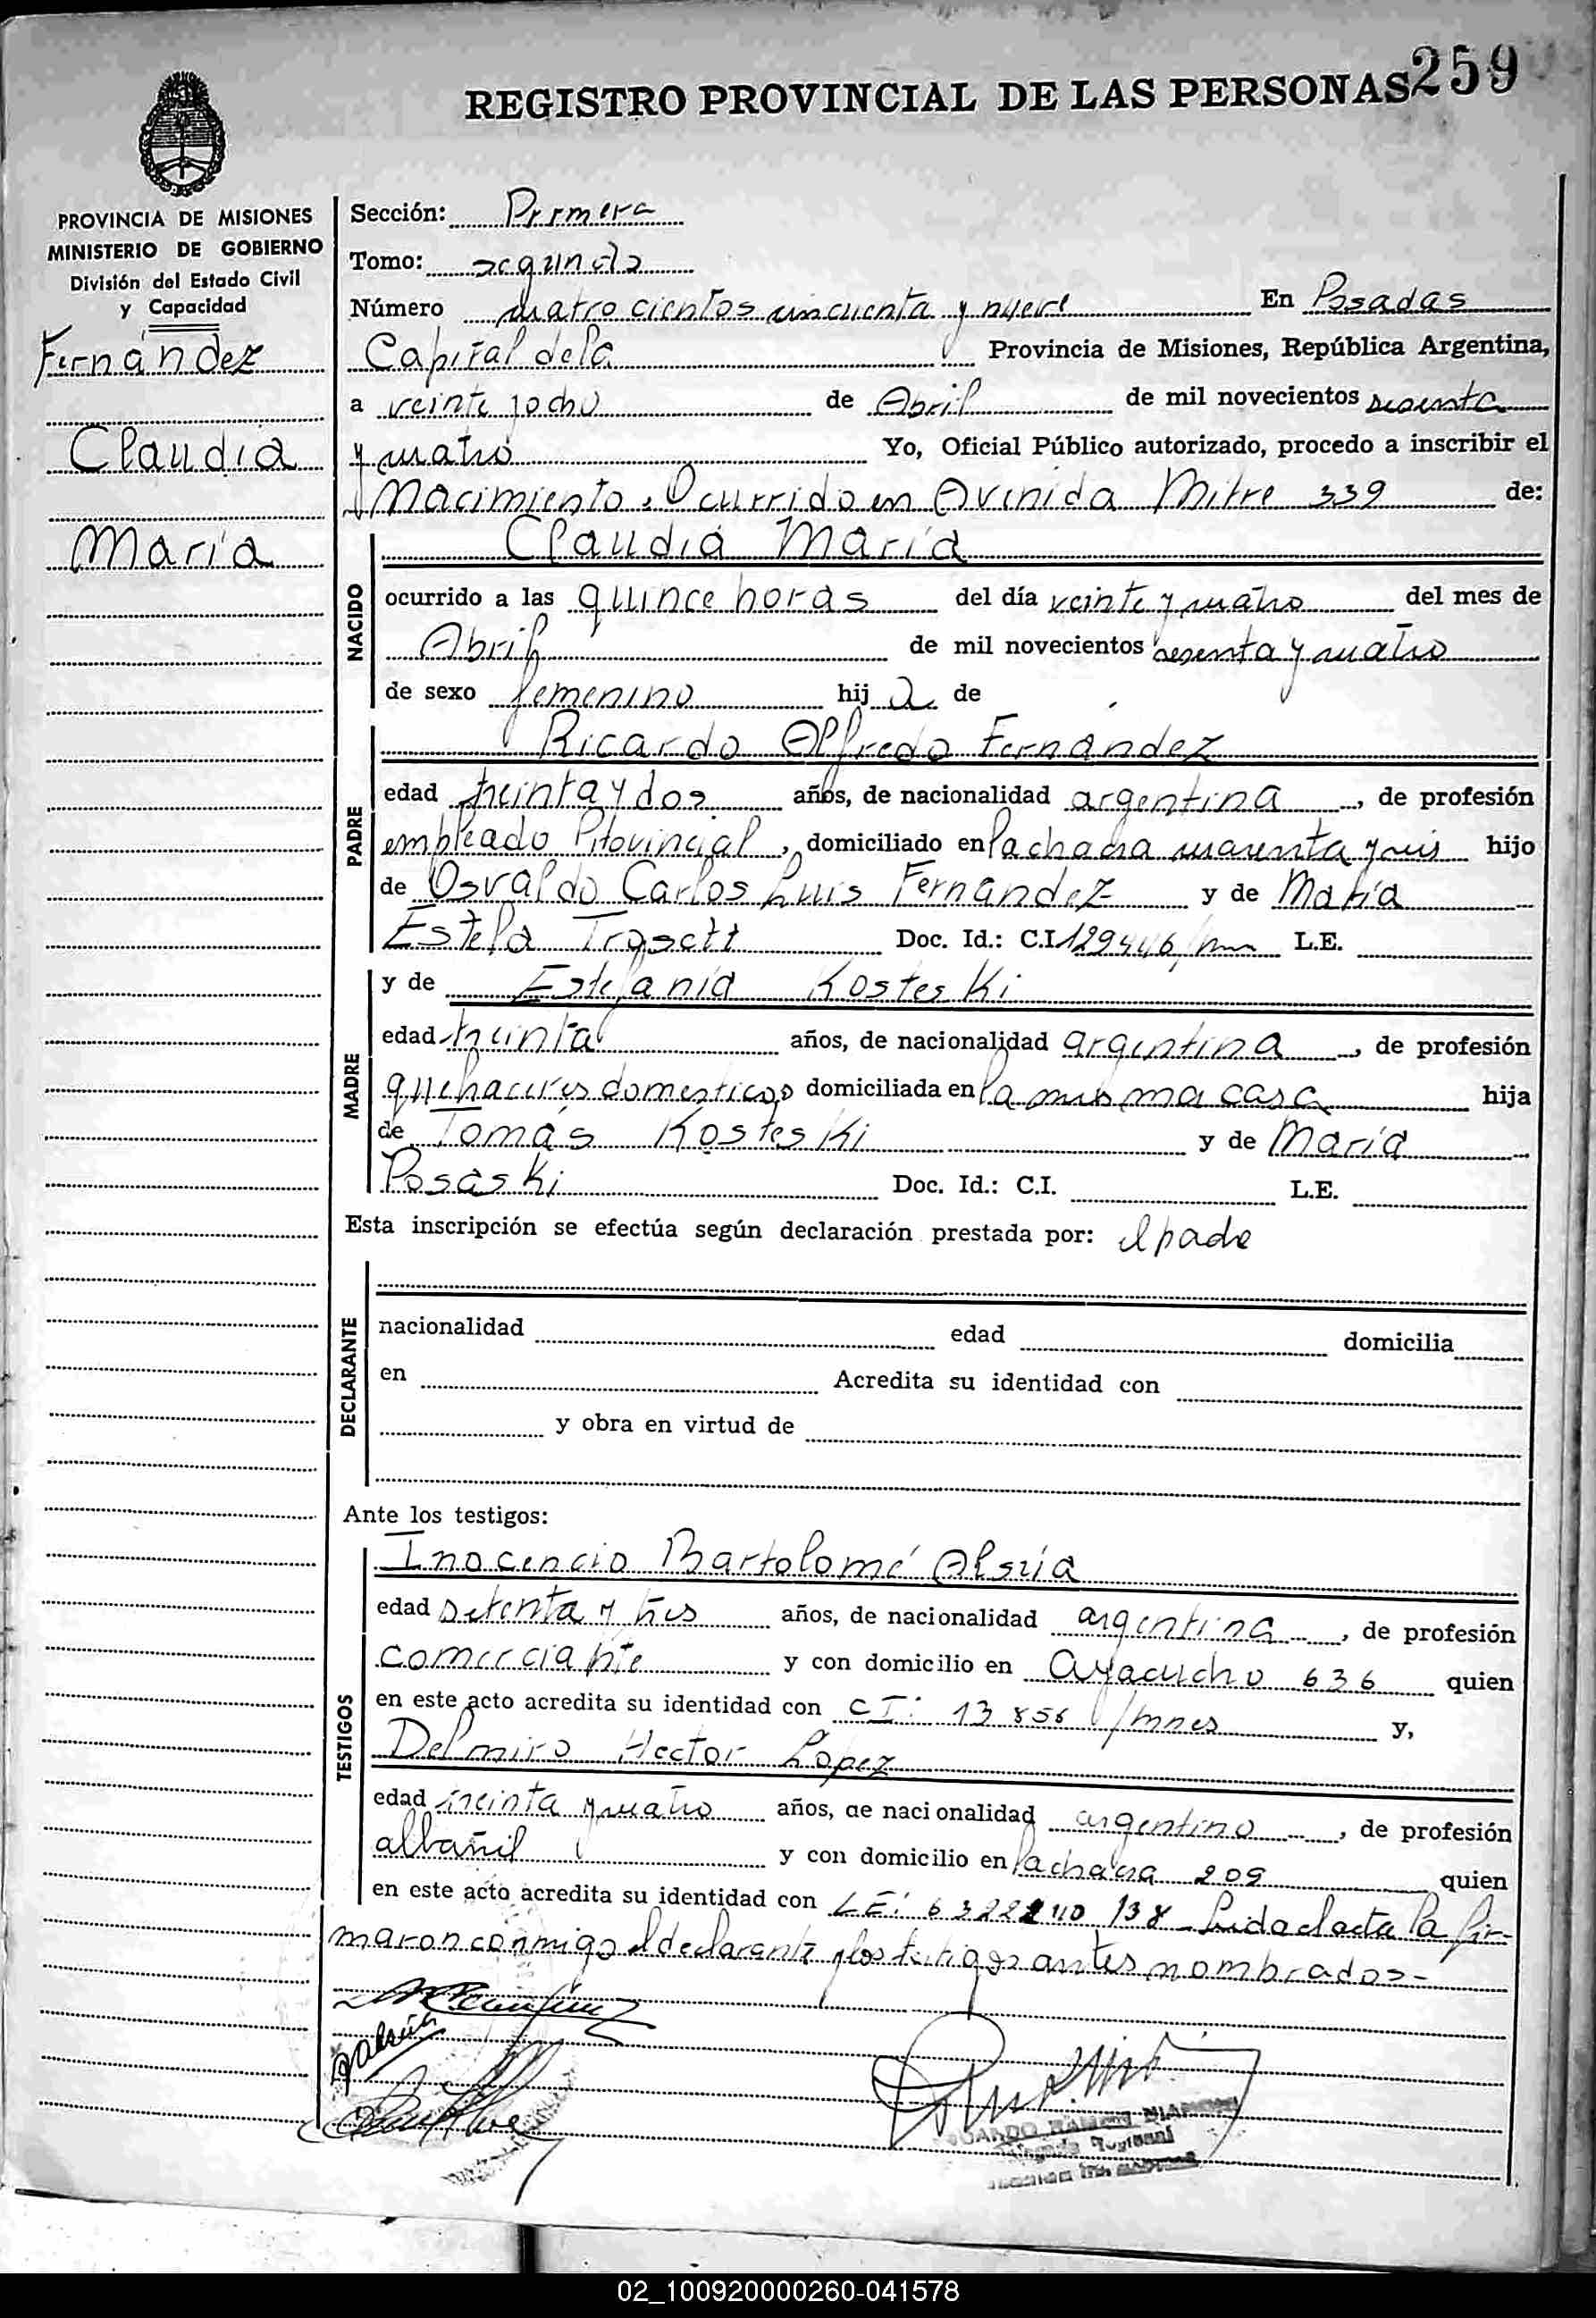 REGISTRO PROVINCIAL DE LAS PERSONAS 259
PROVINCIA DE MISIONES
MINISTERIO DE GOBIERNO
División del Estado Civil
y Capacidad
Fernández
Claudia
María
Sección: Primera
Tomo: segundo
Número cuatrocientos cincuenta y nueve En Posadas
Capital de la Provincia de Misiones, República Argentina,
a veinte y ocho de Abril de mil novecientos sesenta
y cuatro Yo, Oficial Público autorizado, procedo a inscribir el
Nacimiento. Ocurrido en Avenida Mitre 339 de:
NACIDO
Claudia María
ocurrido a las quince horas del día veinte y cuatro del mes de
Abril de mil novecientos sesenta y cuatro
de sexo femenino hija de
PADRE
Ricardo Alfredo Fernández
edad treinta y dos años, de nacionalidad argentina, de profesión
empleado Provincial, domiciliado en la chacra cuarenta y seis hijo
de Osvaldo Carlos Luis Fernández y de María
Estela Doc. Id.: C.I. 129446/mnes L.E.
MADRE
y de Estefanía Kosteski
edad treinta años, de nacionalidad argentina, de profesión
quehaceres domesticos domiciliada en la misma casa hija
de Tomás Kosteski y de María
Posaski Doc. Id.: C.I. L.E.
Esta inscripción se efectúa según declaración prestada por: el padre
DECLARANTE
nacionalidad edad domicilia
en Acredita su identidad con
y obra en virtud de
Ante los testigos:
TESTIGOS
Inocencio Bartolomé Alsúa
edad setenta y tres años, de nacionalidad argentina, de profesión
comerciante y con domicilio en Ayacucho 636 quien
en este acto acredita su identidad con CI: 13856/mnes y,
Delmiro Hector Lopez
edad treinta y cuatro años, de nacionalidad argentino, de profesión
albañil y con domicilio en la chacra 209 quien
en este acto acredita su identidad con LE: Leida el acta la fir-
maron conmigo el declarante y los testigos antes nombrados-
Alsúa
02_100920000260-041578